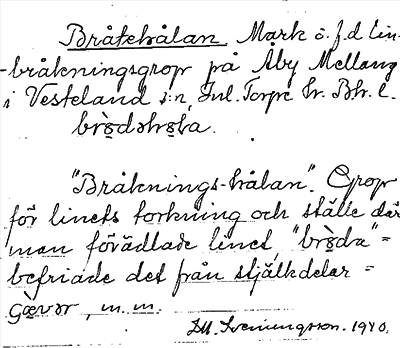 Bråtehålan Mark o. f.d. lin-
-bråkningsgrop på Åby Mellang
i Vesteland s:n, Inl. Torpe hr. Bh. l.
brò̤dəhò̤la.
"Bråknings-hålan". Grop
för linets torkning och ställe där
man förädlade linet, "brò̤da" =
befriade det från stjälkdelar =
gævər, m. m.
Sveningsson. 1940.